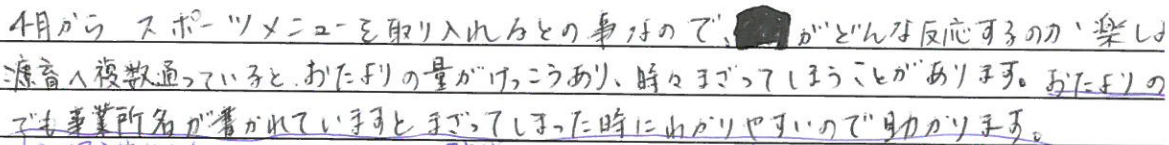 4月から スポーツメニューを取り入れるとの事なので、がどんな反応するのか、楽しみ
療育へ複数通っていると、おたよりの量がけっこうあり、時々まざってしまうことがあります。おたよりの
でも事業所名が書かれていますと まざってしまった時にわかりやすいので助かります。